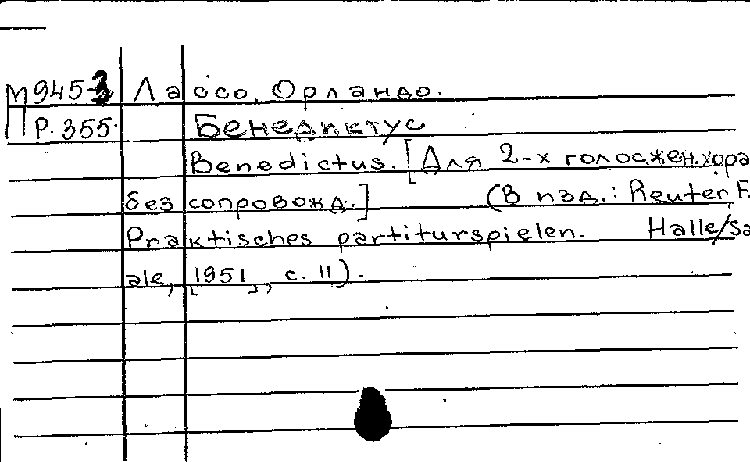 М945-3 Лассо, Орландо.
П Р.355. Бенедиктус
Benedictus. [Для 2-х голос.жен.хора
без сопровожд.] (В изд.: Reuter F.
Praktisches partiturspielen. Halle/Sa
ale, [1951], с. 11).